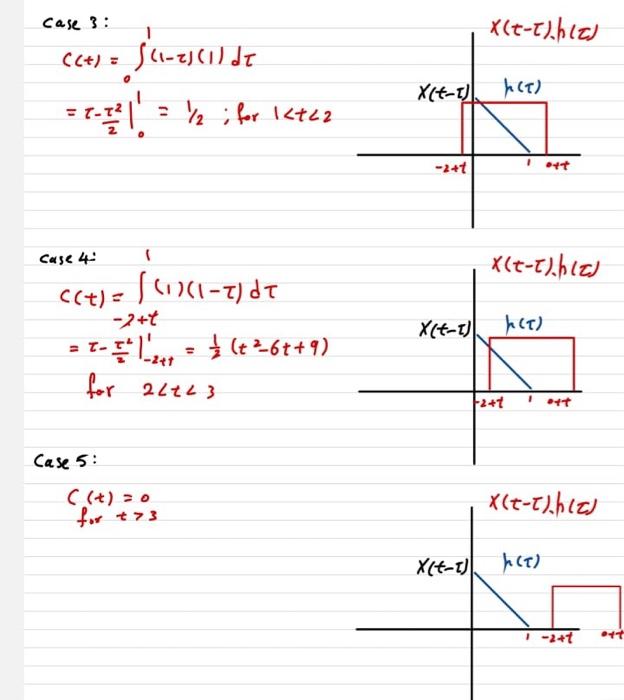 Case 3:
1
C(t) = ∫(1-τ)(1) dτ
0
= τ-τ²/2 |¹₀ = ½ ; for 1<t<2
X(t-τ).h(τ)
X(t-τ) h(τ)
-2+t 1 0+t
Case 4:
1
C(t) = ∫(1)(1-τ) dτ
-2+t
= τ-τ²/2 |¹₋₂₊t = ½ (t²-6t+9)
for 2<t<3
X(t-τ).h(τ)
X(t-τ) h(τ)
-2+t 1 0+t
Case 5:
C(t) = 0
for t>3
X(t-τ).h(τ)
X(t-τ) h(τ)
1 -2+t 0+t